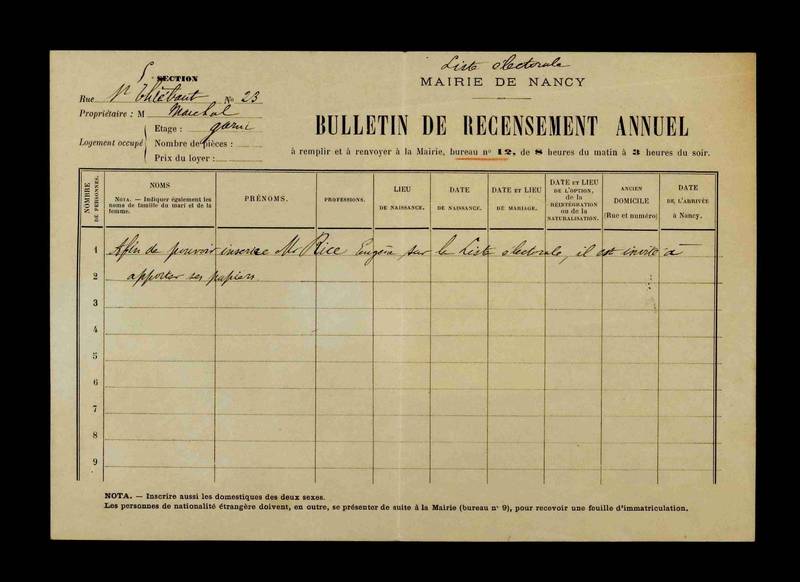 Liste electorale
5. SECTION
MAIRIE DE NANCY
Rue St Thiébaut No 23
Propriétaire : M Marchal
BULLETIN DE RECENSEMENT ANNUEL
Logement occupé
Etage : garni
Nombre de pièces :
Prix du loyer :
à remplir et à renvoyer à la Mairie, bureau no 12, de 8 heures du matin à 3 heures du soir.
NOMBRE DE PERSONNES.
NOMS
NOTA. — Indiquer également les noms de famille du mari et de la femme.
PRÉNOMS.
PROFESSIONS.
LIEU DE NAISSANCE.
DATE DE NAISSANCE.
DATE ET LIEU DE MARIAGE.
DATE ET LIEU DE L'OPTION, de la RÉINTÉGRATION ou de la NATURALISATION.
ANCIEN DOMICILE (Rue et numéro)
DATE DE L'ARRIVÉE à Nancy.
1 Afin de pouvoir inscrire Mr Rice Eugène sur la Liste electorale, il est invité à
2 apporter ses papiers.
3
4
5
6
7
8
9
NOTA. — Inscrire aussi les domestiques des deux sexes.
Les personnes de nationalité étrangère doivent, en outre, se présenter de suite à la Mairie (bureau no 9), pour recevoir une feuille d'immatriculation.